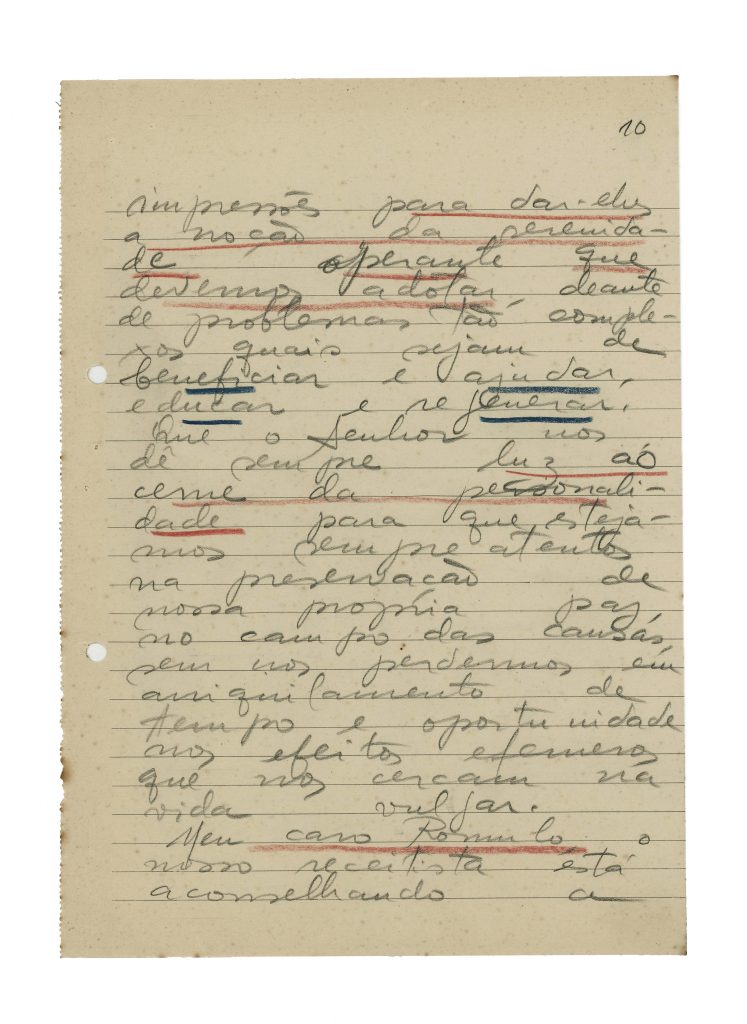 10
impressões para dar-lhes
a noção da serenida-
de operante que
devemos adotar, deante
de problemas tão comple-
xos quais sejam de
beneficiar e ajudar,
educar e regenerar.
Que o Senhor nos
dê sempre luz ao
cerne da personali-
dade para que esteja-
mos sempre atentos
na preservação de
nossa própria paz,
no campo das causas,
sem nos perdermos em
aniquilamento de
tempo e oportunidade
nos efeitos efemeros
que nos cercam na
vida vulgar.
Meu caro Romulo o
nosso receitista está
aconselhando a